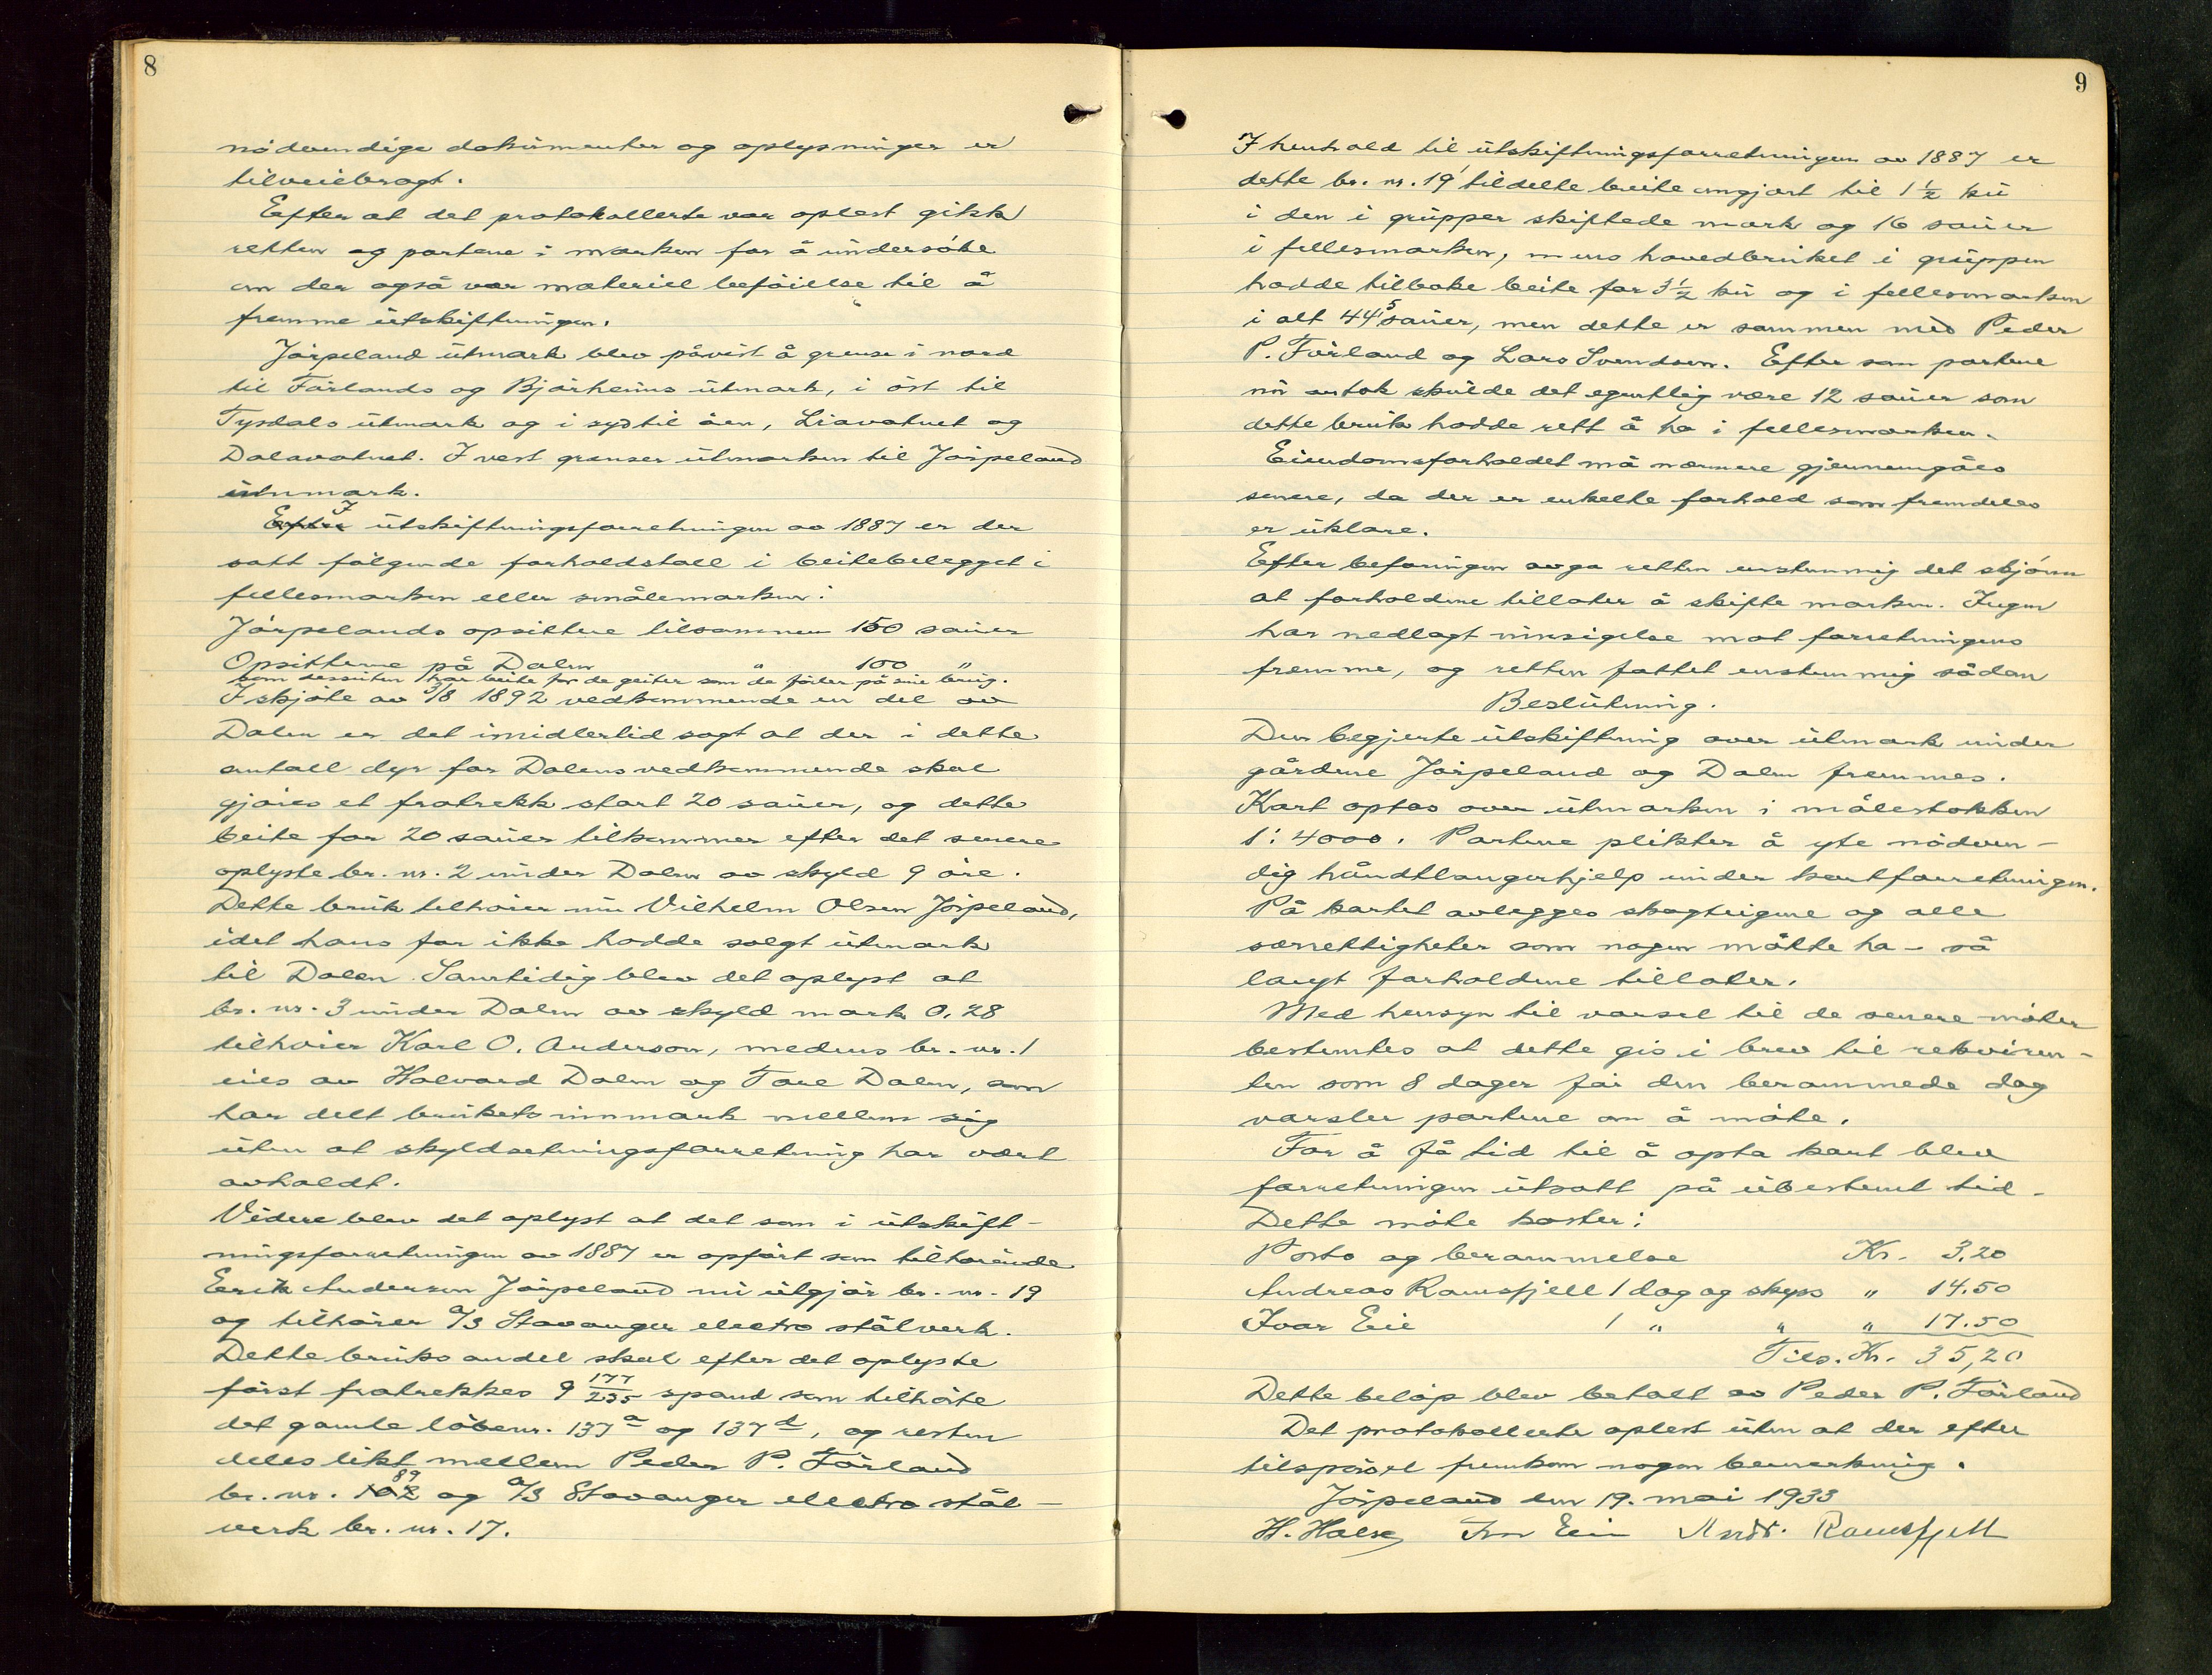 8
nödvendige dokumenter og oplysninger er
tilveiebragt.
Efter at det protokollerte var oplest gikk
retten og partene i marken for å undersöke
om der også var materiell beföielse til å
fremme utskiftningen.
Jörpeland utmark blev påvist å grense i nord
til Förlands og Bjørheims utmark, i öst til
Tysdals utmark og i syd til åen, Liavatnet og
Dalavatnet. I vest grenser utmarken til Jörpeland
innmark.
I utskiftningsforretningen av 1887 er der
satt fölgende forholdstall i beitebelegget i
fellesmarken eller smålemarken:
Jörpelands opsittere tilsammen 150 sauer
Opsitterne på Dalen " 100 "
som dessuten har beite for de geiter som de föder på sine bruig.
I skjöte av 3/8 1892 vedkommende en del av
Dalen er det imidlertid sagt at der i dette
antall dyr for Dalens vedkommende skal
gjöres et fratrekk stort 20 sauer, og dette
beite for 20 sauer tilkommer efter det senere
oplyste br. nr. 2 under Dalen av skyld 9 öre.
Dette bruk tilhöier nu Vilhelm Olsen Jörpeland,
idet hans far ikke hadde solgt utmark
til Dalen. Samtidig blev det oplyst at
br. nr. 3 under Dalen av skyld mark 0.28
tilhöier Karl O. Anderson, medens br. nr. 1
eies av Halvard Dalen og Tore Dalen, som
har delt brukets innmark mellem sig
uten at skyldsetningsforretning har vært
avholdt.
Videre blev det oplyst at det som i utskift-
ningsforretningen av 1887 er opfört som tilhörende
Eerik Andersen Jörpeland nu utgjör br. nr. 19
og tilhörer a/s Stavanger electro stålverk.
Dette bruks andel skal efter det oplyste
först fratrekkes 9 177/235 spand som tilhöte
det gamle löbenr. 137a og 137d, og resten
deles likt mellem Peder P. Förland
br. nr. 89 og a/s Stavanger electro stål-
verk br. nr. 17.
9
I henhold til utskiftningsforretningen av 1887 er
dette br. nr. 19's tildelte beite omgjort til 1 1/2 ku
i den i grupper skiftede mark og 16 sauer
i fellesmarken, mens hovedbruket i gruppen
hadde tilbake beite for 3 1/2 ku og i fellesmarken
i alt 44,5 sauer, men dette er sammen med Peder
P. Förland og Lars Svendsen. Efter som partene
nu antok skulde det egentlig være 12 sauer som
dette bruk hadde rett å ha i fellesmarken.
Eiendomsforholdet må nærmere gjennemgåes
senere, da der er enkelte forhold som fremdeles
er uklare.
Efter befaringen avga retten enstemmig det skjönn
at forholdene tillater å skifte marken. Ingen
har nedlagt innsigelse mot forretningens
fremme, og retten fattet enstemmig sådan
Beslutning.
Den begjerte utskiftning over utmark under
gårdene Jörpeland og Dalen fremmes.
Kart optas over utmarken i målestokken
1:4000. Partene plikter å yte nödven-
dig håndtlangerhjelp under kartforretningen.
På kartet avlegges skogteigene og alle
særrettigheter som nogen måtte ha - så
langt forholdene tillater.
Med hensyn til varsel til de senere möter
bestemtes at dette gis i brev til rekviren-
ten som 8 dager för den berammede dag
varsler partene om å möte.
For å få tid til å opta kart blev
forretningen utsatt på ubestemt tid.
Dette möte koster:
Porto og berammelse Kr. 3.20
Andreas Ramsfjell 1 dag og skyss " 14.50
Ivar Eie 1 " " " 17.50
Tils. Kr. 35,20
Dette belöp blev betalt av Peder P. Förland
Det protokollerte oplest uten at der efter
tilspörsel fremkom nogen bemerkning.
Jörpeland den 19. mai 1933
H. Halse Ivar Eie Andr. Ramsfjell